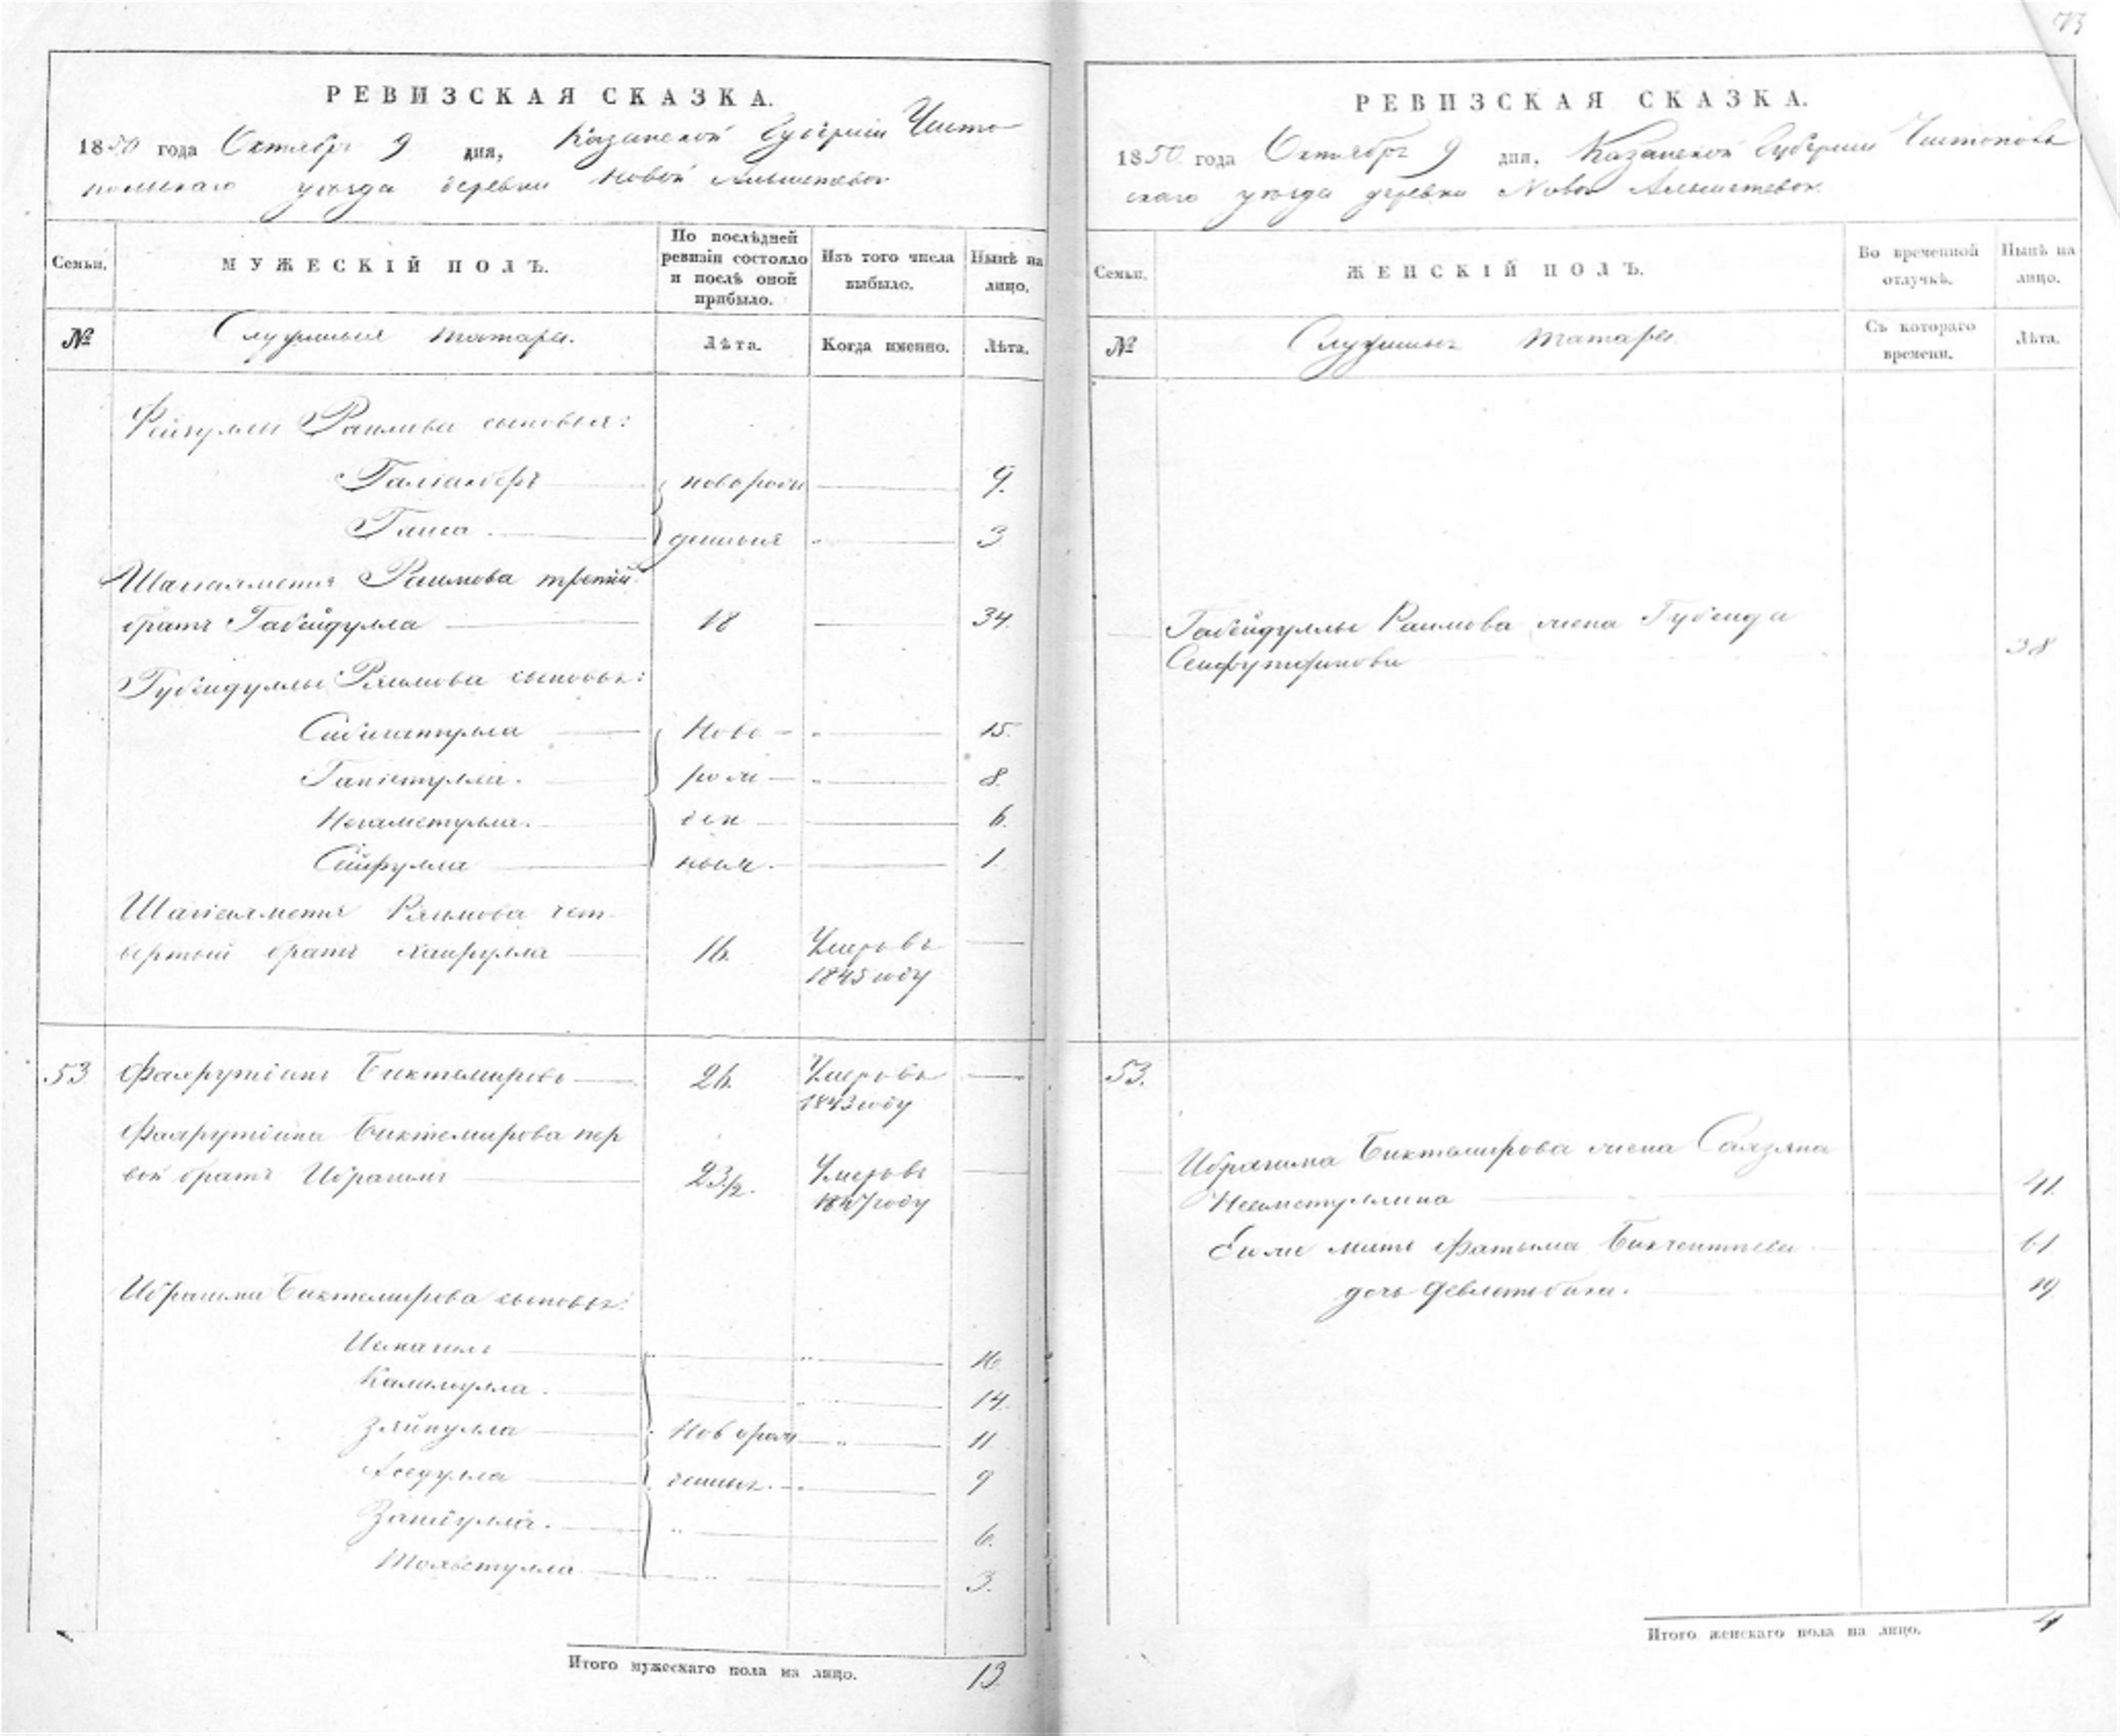 73
РЕВИЗСКАЯ СКАЗКА.
1850 года Октября 9 дня, Казанской Губерніи Чисто
польскаго уѣзда деревни Новой Альметевой
Семьи.
МУЖЕСКІЙ ПОЛЪ.
По послѣдней ревизіи состояло и послѣ оной прибыло.
Изъ того числа выбыло.
Нынѣ на лицо.
№
Служилыя татары.
Лѣта.
Когда именно.
Лѣта.
Фейзуллы Раимова сыновья:
новорож 9.
Гаиса денныя 3
Раимова третій
братъ Габейдулла 18 34.
Губейдуллы Раимова сыновья:
Ново 15.
рож 8.
ден 6.
Сайфулла ныя. 1.
Раимова чет
вертый братъ Хайрулла 16. Умеръ въ
1845 году
53 Фахрутдинъ Биктемировъ 26. Умеръ въ
1843 году
Фахрутдина Биктемирова пер
вой братъ Ибрагимъ 23½. Умеръ въ
1847 году
Ибрагима Биктемирова сыновья:
Исмагилъ 16.
Калимулла. 14.
Зяйнулла Новорож 11
Асадулла денныя. 9
6.
3.
Итого мужескаго пола на лицо. 13.
РЕВИЗСКАЯ СКАЗКА.
1850 года Октября 9 дня, Казанской Губерніи Чистополь
скаго уѣзда деревни Новой Альметевой.
Семьи.
ЖЕНСКІЙ ПОЛЪ.
Во временной отлучкѣ.
Нынѣ на лицо.
№
Служилыя татары.
Съ котораго времени.
Лѣта.
Габейдуллы Раимова жена Губейда
38
53.
Ибрагима Биктемирова жена
Неаметуллина 41.
Его же мать Фатыма 61
дочь Девлетбика. 19
Итого женскаго пола на лицо. 4